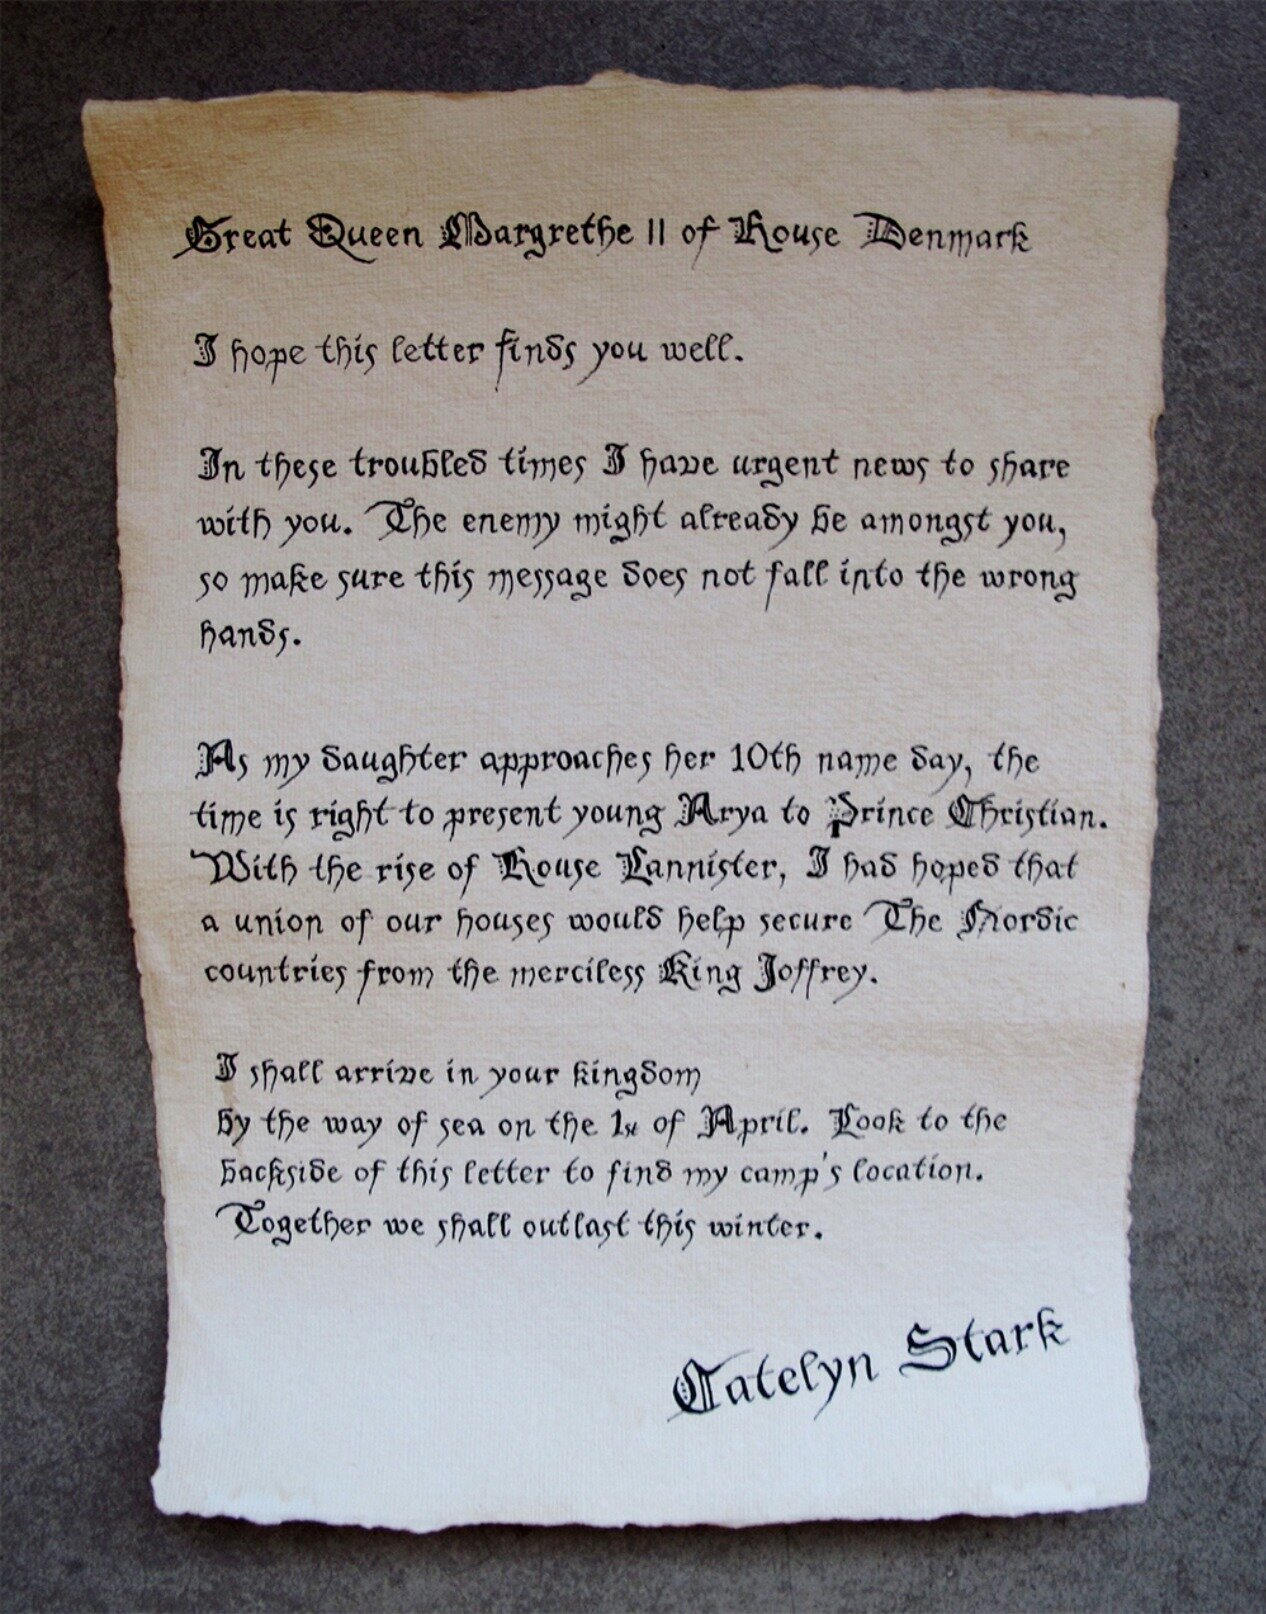 Great Queen Margrethe II of House Denmark
I hope this letter finds you well.
In these troubled times I have urgent news to share
with you. The enemy might already be amongst you,
so make sure this message does not fall into the wrong
hands.
As my daughter approaches her 10th name day, the
time is right to present young Arya to Prince Christian.
With the rise of House Lannister, I had hoped that
a union of our houses would help secure The Nordic
countries from the merciless King Joffrey.
I shall arrive in your kingdom
by the way of sea on the 1st of April. Look to the
backside of this letter to find my camp's location.
Together we shall outlast this winter.
Catelyn Stark